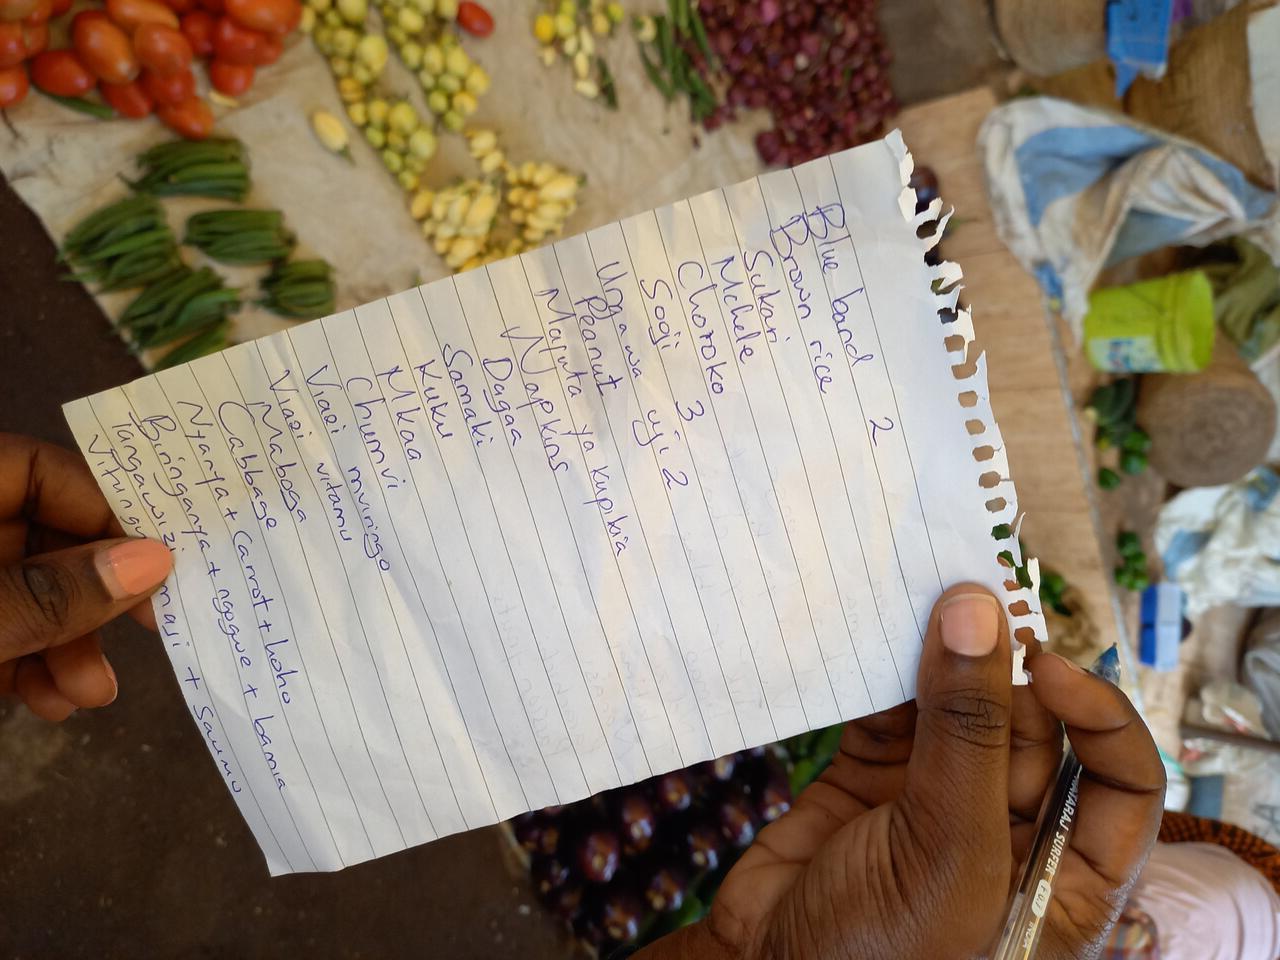 Blue band 2
Brown rice
Sukari
Mchele
Choroko
Sogi 3
Unga wa uji 2
Peanut
Mafuta ya kupikia
Napkins
Dagaa
Samaki
Kuku
Mkaa
Chumvi
Viazi mviringo
Viazi vitamu
Maboga
Cabbage
Nyanya + Carrot + hoho
Biringanya + ngogwe + bamia
Tangawizi
Vitunguu maji + Saumu
NATARAJ SURFER FUJ INDIA